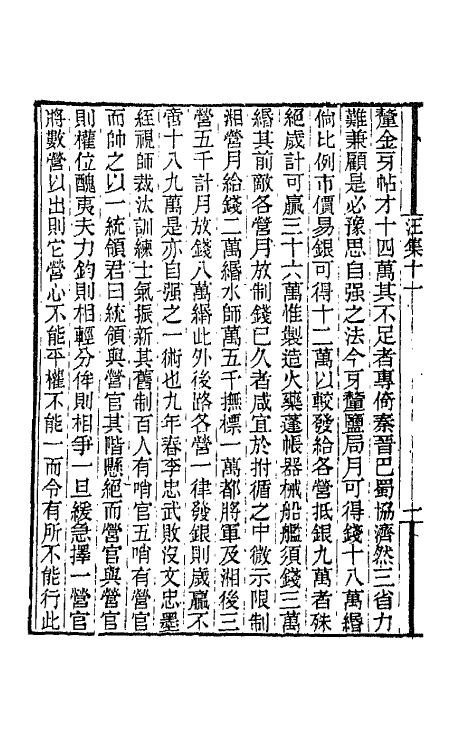 釐金牙帖才十四萬其不足者專倚秦晉巴蜀協濟然三省力
難兼顧是必豫思自强之法今牙釐鹽局月可得錢十八萬緡
倘比例市價易銀可得十二萬以較發給各營抵銀九萬者殊
絕歲計可贏三十六萬惟製造火藥蓬帳器械船艦須錢三萬
緡其前敵各營月放制錢已久者咸宜於拊循之中微示限制
湘營月給錢二萬緡水師萬五千撫標一萬都將軍及湘後三
營五千計月放錢八萬緡此外後路各營一律發銀則歲贏不
啻十八九萬是亦自强之一術也九年春李忠武敗沒文忠墨
絰視師裁汰訓練士氣振新其舊制百人有哨官五哨有營官
而帥之以一統領君曰統領與營官其階懸絕而營官與營官
則權位醜夷夫力鈞則相輕分侔則相爭一旦緩急擇一營官
將數營以出則它營心不能平權不能一而令有所不能行此
汪集十一